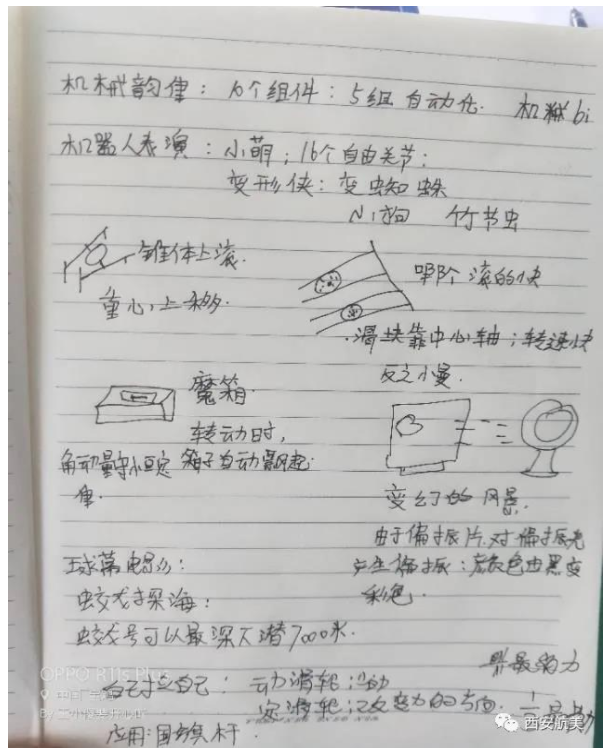 机械韵律：10个组件：5组 自动化. 机械bi
机器人表演：小萌；16个自由关节；
变形侠：变蜘蛛
小狗 竹节虫
锥体上滚.
重心上移
哪个滚的快
滑块靠中心轴；转速快
反之小慢.
魔箱.
转动时,
角动量守恒定 箱子自动飘起
律.
变幻的风景.
由于偏振片对偏振光
产生偏振：颜色由黑变
彩色.
球幕电影：
蛟龙探海：
蛟龙号可以最深下潜7000米.
最省力
自己拉自己：动滑轮；省力
定滑轮；改变力的方向.
应用：国旗杆.
OPPO R11s Plus
西安航美